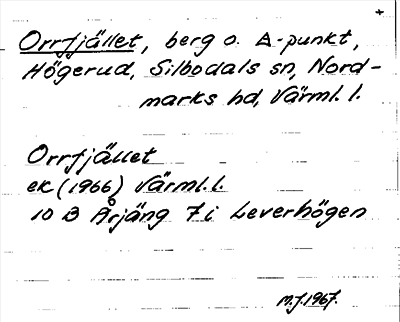 +
Orrfjället, berg o. △-punkt,
Högerud, Silbodals sn, Nord-
marks hd, Värml. l.
Orrfjället
ek (1966) Värml. l.
10 B Årjäng 7i Leverhögen
M.J. 1967.